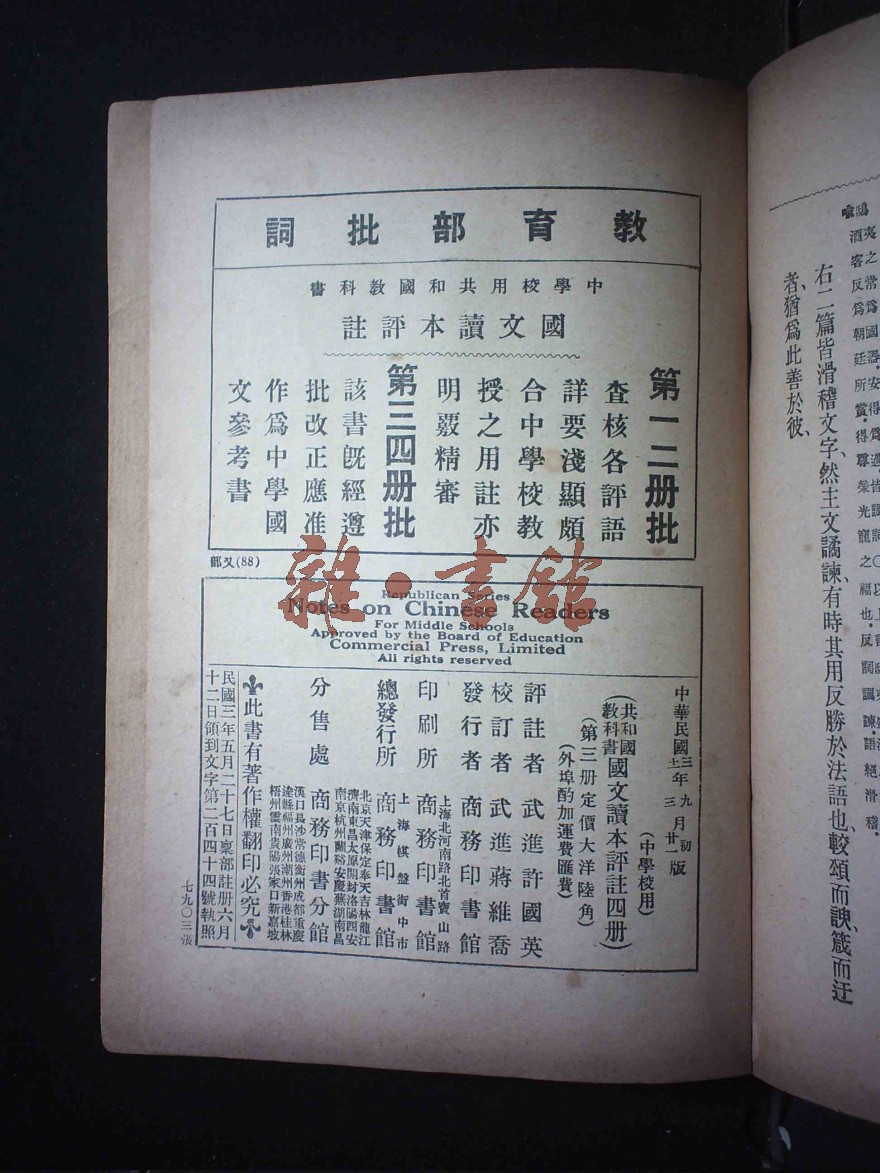 教育部批詞
中學校用共和國教科書
國文讀本評註
第一二册批
査核各評語
詳要淺顯頗
合中學校教
授之用註亦
明覈精審
第三四册批
該書旣經遵
批改正應准
作爲中學國
文參考書
部又(88)
雜·書館
Republican Series
Notes on Chinese Readers
For Middle Schools
Approved by the Board of Education
Commercial Press, Limited
All rights reserved
中華民國三年九月初版
十二年三月廿一版
(中學校用)
(共和國教科書國文讀本評註四册)
(第三册定價大洋陸角)
(外埠酌加運費匯費)
評註者 武進許國英
校訂者 武進蔣維喬
發行者 商務印書館
上海北河南路北首寶山路
印刷所 商務印書館
上海棋盤街中市
總發行所 商務印書館
北京天津保定奉天吉林龍江
濟南東昌太原開封洛陽西安
南京杭州蘭谿安慶蕪湖南昌
分售處 商務印書分館
漢口長沙常德衡州成都重慶
達縣福州廣州潮州香港桂林
梧州雲南貴陽張家口新嘉坡
此書有著作權翻印必究
民國三年五月二十七日稟部註册六月
十二日領到文字第二百四十四號執照
七九〇三張
鴟夷之常爲國器、安得爲過、皆諷詞〇以上
酒客反爲朝廷所賞、得尊榮光寵之福也、反詞諷諫、語絕滑稽、
右二篇皆滑稽文字、然主文譎諫、有時其用反勝於法語也、較頌而諛、箴而迂
者、猶爲此善於彼、